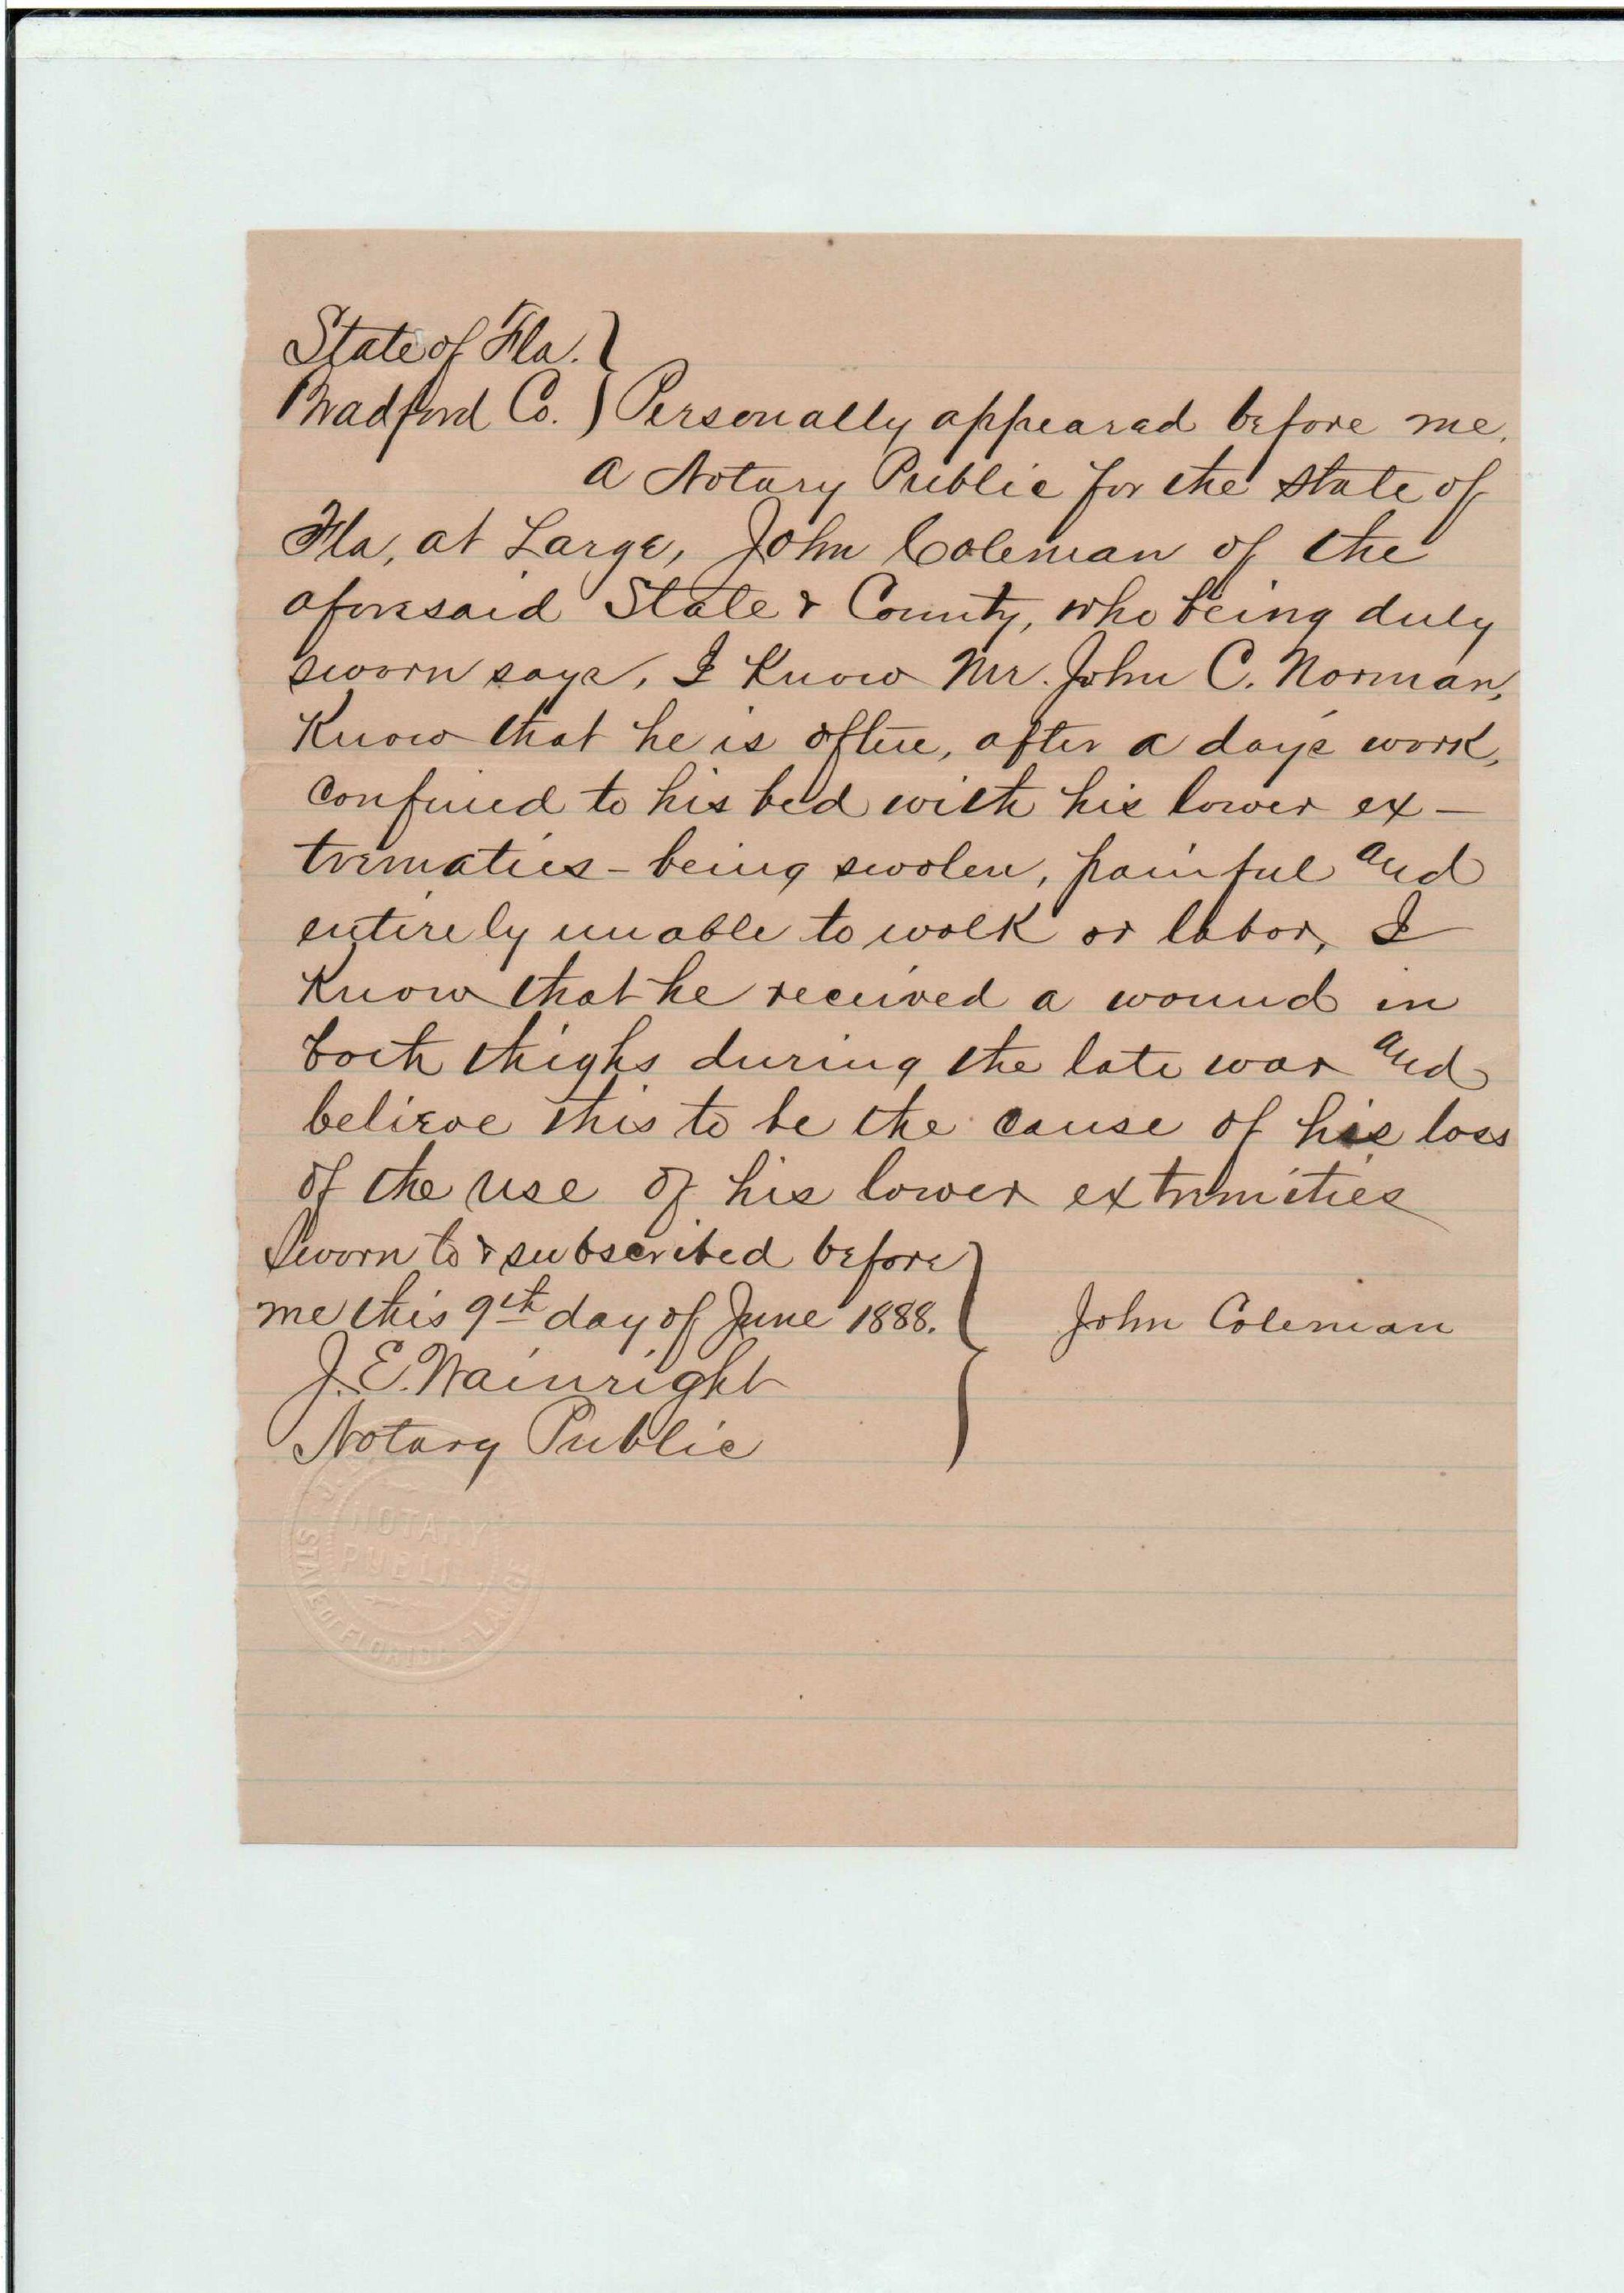 State of Fla. }
Bradford Co. } Personally appeared before me,
a Notary Public for the State of
Fla, at Large, John Coleman of the
aforesaid State & County, who being duly
sworn says, I Know Mr. John C. Norman,
Know that he is often, after a day's work,
confined to his bed with his lower ex-
trematies - being swolen, painful and
entirely unable to walk or labor, I
Know that he received a wound in
both thighs during the late war and
believe this to be the cause of his loss
of the use of his lower extremities
Sworn to & subscribed before
me this 9th day of June 1888. } John Coleman
J. E. Wainright
Notary Public
NOTARY
PUBLIC
STATE OF FLORIDA